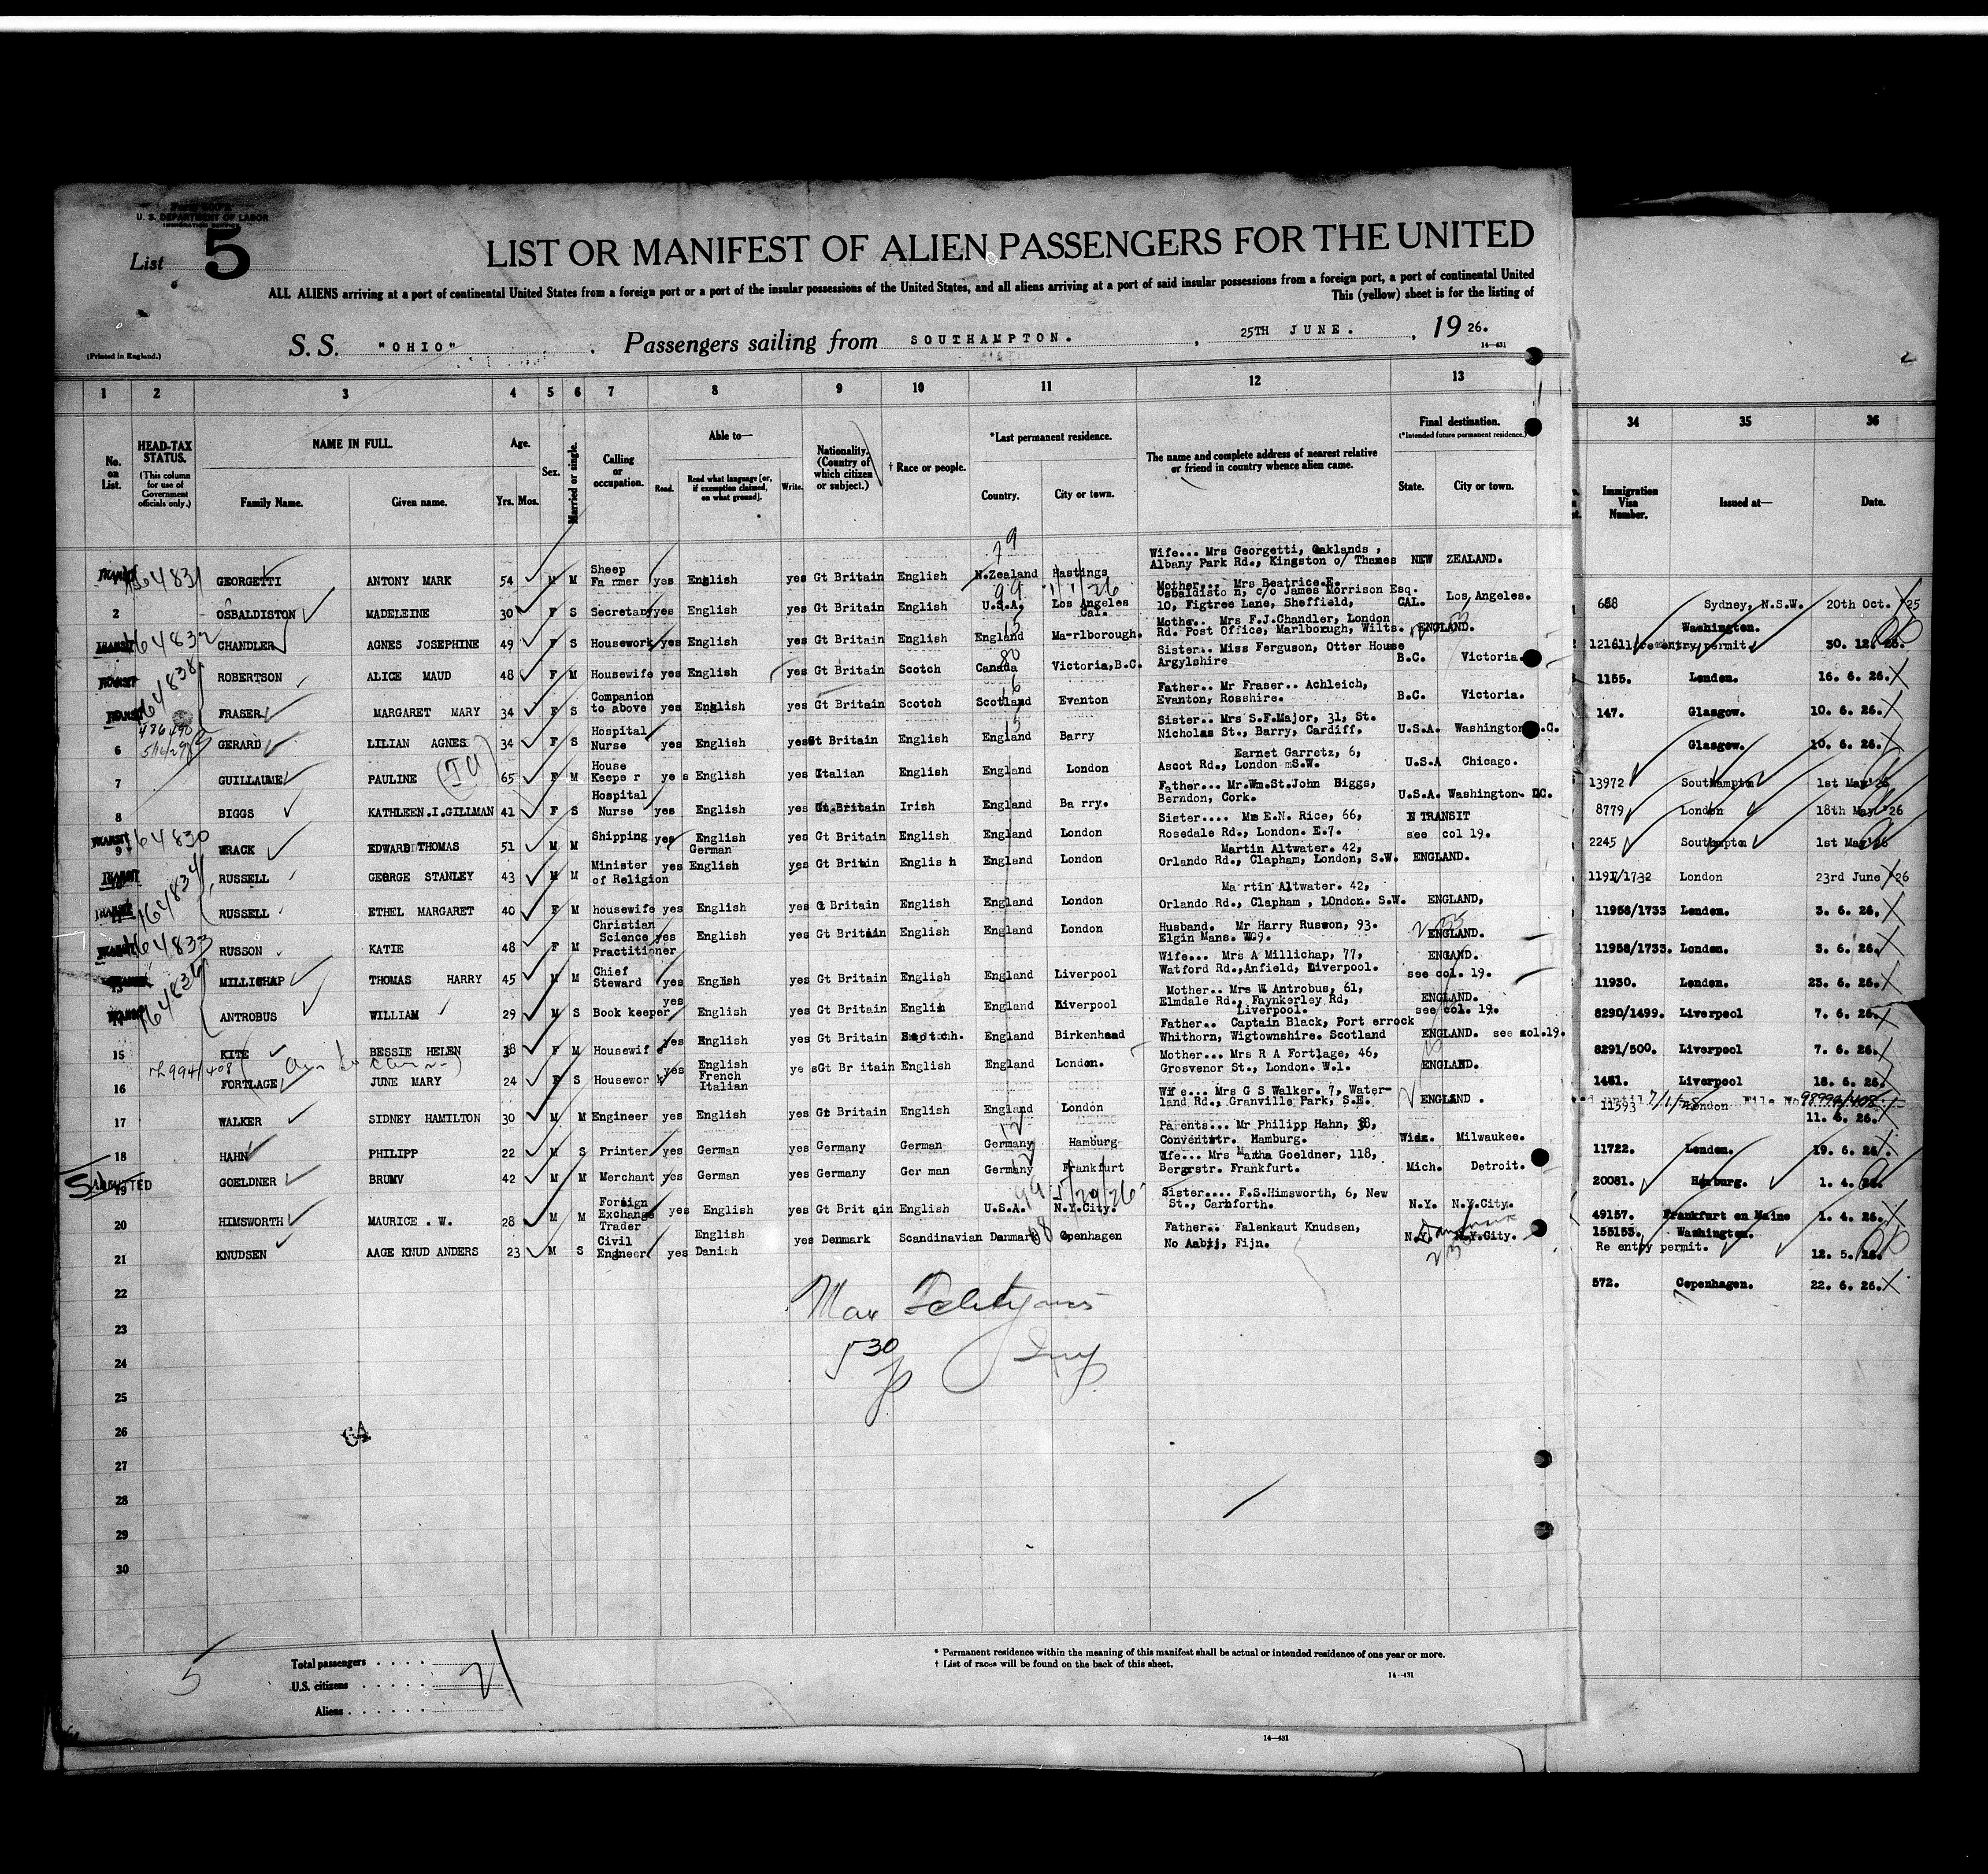 U. S. DEPARTMENT OF LABOR
IMMIGRATION SERVICE
List 5
LIST OR MANIFEST OF ALIEN PASSENGERS FOR THE UNITED
ALL ALIENS arriving at a port of continental United States from a foreign port or a port of the insular possessions of the United States, and all aliens arriving at a port of said insular possessions from a foreign port, a port of continental United
This (yellow) sheet is for the listing of
(Printed in England.)
S. S. "OHIO" . Passengers sailing from SOUTHAMPTON. , 25TH JUNE. , 19 26.
14—431
1 2 3 4 5 6 7 8 9 10 11 12 13 34 35 36
No. on List.
HEAD-TAX STATUS.
(This column for use of Government officials only.)
NAME IN FULL.
Family Name. Given name.
Age.
Yrs. Mos.
Sex.
Married or single.
Calling or occupation.
Able to—
Read. Read what language [or, if exemption claimed, on what ground]. Write.
Nationality. (Country of which citizen or subject.)
† Race or people.
*Last permanent residence.
Country. City or town.
The name and complete address of nearest relative or friend in country whence alien came.
Final destination.
(*Intended future permanent residence.)
State. City or town.
Immigration Visa Number.
Issued at—
Date.
GEORGETTI ANTONY MARK 54 M M Sheep Fa rmer yes English yes Gt Britain English N.Zealand Hastings Wife... Mrs Georgetti, Oaklands , Albany Park Rd., Kingston o/ Thames NEW ZEALAND.
2 OSBALDISTON MADELEINE 30 F S Secretary yes English yes Gt Britain English U.S.A. Los Angeles Cal. Mother... Mrs Beatrice.E. Osbaldisto n, c/o James Morrison Esq. 10, Figtree Lane, Sheffield, CAL. Los Angeles.
TRANSIT 164832 CHANDLER AGNES JOSEPHINE 49 F S Housework yes English yes Gt Britain English England Ma-rlborough. Mother.. Mrs F.J.Chandler, London Rd. Post Office, Marlborough, Wilts. ENGLAND.
ROBERTSON ALICE MAUD 48 F M Housewife yes English yes Gt Britain Scotch Canada Victoria,B.C. Sister.. Miss Ferguson, Otter House Argylshire B.C. Victoria.
FRASER MARGARET MARY 34 F S Companion to above yes English yes Gt Britain Scotch Scotland Evanton Father.. Mr Fraser.. Achleich, Evanton, Rosshire. B.C. Victoria.
6 GERARD LILIAN AGNES 34 F S Hospital Nurse yes English yes Gt Britain English England Barry Sister.. Mrs S.F.Major, 31, St. Nicholas St., Barry, Cardiff, U.S.A. Washington D.C.
7 GUILLAUME PAULINE 65 F M House Keepe r ye s English yes Italian English England London Earnet Garretz, 6, Ascot Rd., London S.W. U.S.A Chicago.
8 BIGGS KATHLEEN.I.GILLMAN 41 F S Hospital Nurse yes English yes Gt.Britain Irish England Ba rry. Father... Mr.Wm.St.John Biggs, Berndon, Cork. U.S.A. Washington- DC.
TRANSIT 9 164830 WRACK EDWARD THOMAS 51 M M Shipping yes English German yes Gt Britain English England London Sister.... Ms E.N. Rice, 66, Rosedale Rd., London. E.7. IN TRANSIT see col 19.
RUSSELL GEORGE STANLEY 43 M M Minister of Religion yes English yes Gt Britain Englis h England London Martin Altwater. 42, Orlando Rd., Clapham, London, S.W. ENGLAND.
RUSSELL ETHEL MARGARET 40 F M housewife yes English yes Gt Britain English England London Ma rtin Altwater. 42, Orlando Rd., Clapham , LOndon. S.W. ENGLAND,
164833 RUSSON KATIE 48 F M Christian Science Practitioner yes English yes Gt Britain English England London Husband. Mr Harry Russon, 93. Elgin Mans. W.9. ENGLAND.
MILLICHAP THOMAS HARRY 45 M M Chief Steward yes English yes Gt Britain English England Liverpool Wife... Mrs A Millichap, 77, Watford Rd.,Anfield, Liverpool. ENGAND. see col. 19.
ANTROBUS WILLIAM 29 M S Book keeper yes English yes Gt Britain English England Liverpool Mother.. Mrs W. Antrobus, 61, Elmdale Rd., Faynkerley Rd, Liverpool. ENGLAND. see col. 19.
15 KITE BESSIE HELEN 38 F M Housewif e yes English yes Gt Britain Scotch. England Birkenhead Father.. Captain Black, Port errock Whithorn, Wigtownshire. Scotland ENGLAND. see col.19.
16 FORTLAGE JUNE MARY 24 F S Housewor k yes English French Italian ye s Gt Br itain English England London. Mother... Mrs R A Fortlage, 46, Grosvenor St., London. W.1. ENGLAND.
17 WALKER SIDNEY HAMILTON 30 M M Engineer yes English yes Gt Britain English England London Wif e... Mrs G S Walker. 7, Water-land Rd., Granville Park, S.E. ENGLAND .
18 HAHN PHILIPP 22 M S Printer yes German yes Germany German Germany Hamburg Parents... Mr Philipp Hahn, 38, Conventstr. Hamburg. Wisc. Milwaukee.
ADMITTED 19 GOELDNER BRUNV 42 M M Merchant yes German yes Germany Ger man Germany Frankfurt Wife... Mrs Martha Goeldner, 118, Bergrstr. Frankfurt. Mich. Detroit.
20 HIMSWORTH MAURICE . W. 28 M M Foreign Exchange Trader yes English yes Gt Brit ain English U.S.A. N.Y.City. Sister.... F.S.Himsworth, 6, New St., Carnforth. N.Y. N.Y.City.
21 KNUDSEN AAGE KNUD ANDERS 23 M S Civil Engineer yes English Danish yes Denmark Scandinavian Danmark Copenhagen Father.. Falenkaut Knudsen, No Aabij, Fijn. N.Y. N.Y.City. Danmark
22
23
24
25
26
27
28
29
30
668 Sydney, N.S.W. 20th Oct. '25
12161 re entry permit. Washington. 30. 12. 25.
1155. London. 16. 6. 26.
147. Glasgow. 10. 6. 26.
Glasgow. 10. 6. 26.
13972 Southampton 1st May'26
8779 London 18th May '26
2245 Southampton 1st May'26
1191/1732 London 23rd June '26
11958/1733 London. 3. 6. 26.
11958/1733. London. 3. 6. 26.
11930. London. 23. 6. 26.
8290/1499. Liverpool 7. 6. 26.
8291/500. Liverpool 7. 6. 26.
1481. Liverpool 18. 6. 26.
11593 London 11. 6. 26.
11722. London. 19. 6. 26.
20081. Hamburg. 1. 4. 26.
49157. Frankfurt on Maine 1. 4. 26.
155153. Washington.
Re entry permit. 12. 5. 26.
572. Copenhagen. 22. 6. 26.
5
Total passengers
U.S. citizens
Aliens
21
* Permanent residence within the meaning of this manifest shall be actual or intended residence of one year or more.
† List of races will be found on the back of this sheet.
14—431
14—431